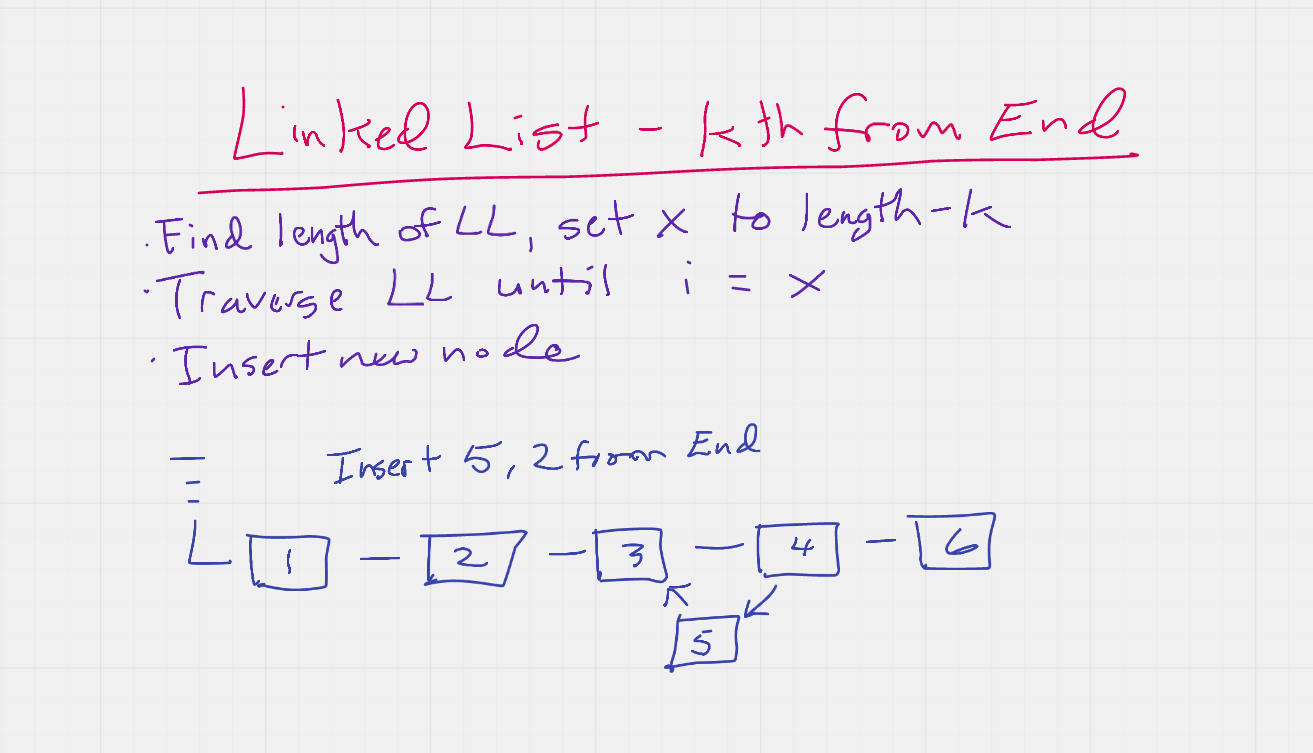 Linked List - kth from End
· Find length of LL, set x to length-k
· Traverse LL until i = x
· Insert new node
Insert 5, 2 from End
1 - 2 - 3 - 4 - 6
5